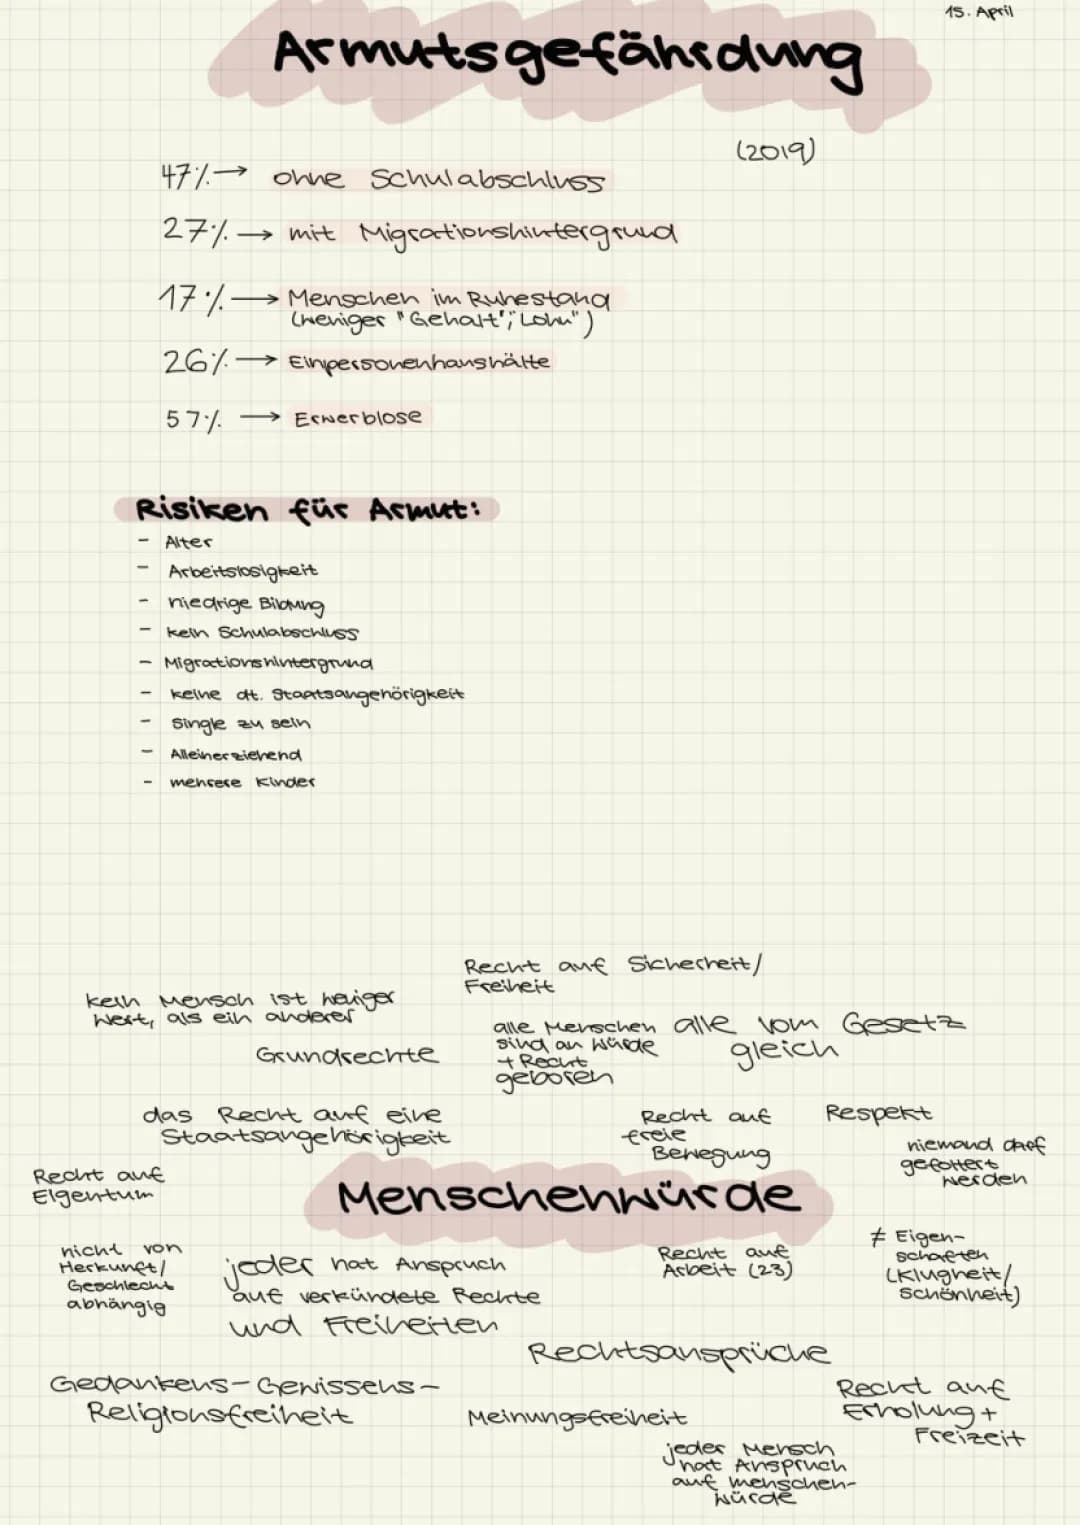 15. April
Armutsgefährdung
(2019)
47% → ohne Schulabschluss
27% → mit Migrationshintergrund
17% → Menschen im Ruhestand
(weniger "Gehalt", "Lohn")
26% → Einpersonenhaushälte
57% → Erwerblose
Risiken für Armut:
- Alter
- Arbeitslosigkeit
- niedrige Bildung
- kein Schulabschluss
- Migrationshintergrund
- keine dt. Staatsangehörigkeit
- Single zu sein
- Alleinerziehend
- mehrere Kinder
Recht auf Sicherheit/
Freiheit
kein Mensch ist weniger
wert, als ein anderer
alle Menschen
sind an Würde
+ Recht
geboren
alle vom Gesetz
gleich
Grundrechte
das Recht auf eine
Staatsangehörigkeit
Recht auf
freie
Bewegung
Respekt
niemand darf
gefoltert
werden
Recht auf
Eigentum
Menschenwürde
nicht von
Herkunft/
Geschlecht
abhängig
jeder hat Anspruch
auf verkündete Rechte
und Freiheiten
Recht auf
Arbeit (23)
≠ Eigen-
schaften
(Klugheit/
Schönheit)
Rechtsansprüche
Gedankens-Gewissens-
Religionsfreiheit
Meinungsfreiheit
Recht auf
Erholung +
Freizeit
jeder Mensch
hat Anspruch
auf menschen-
würde